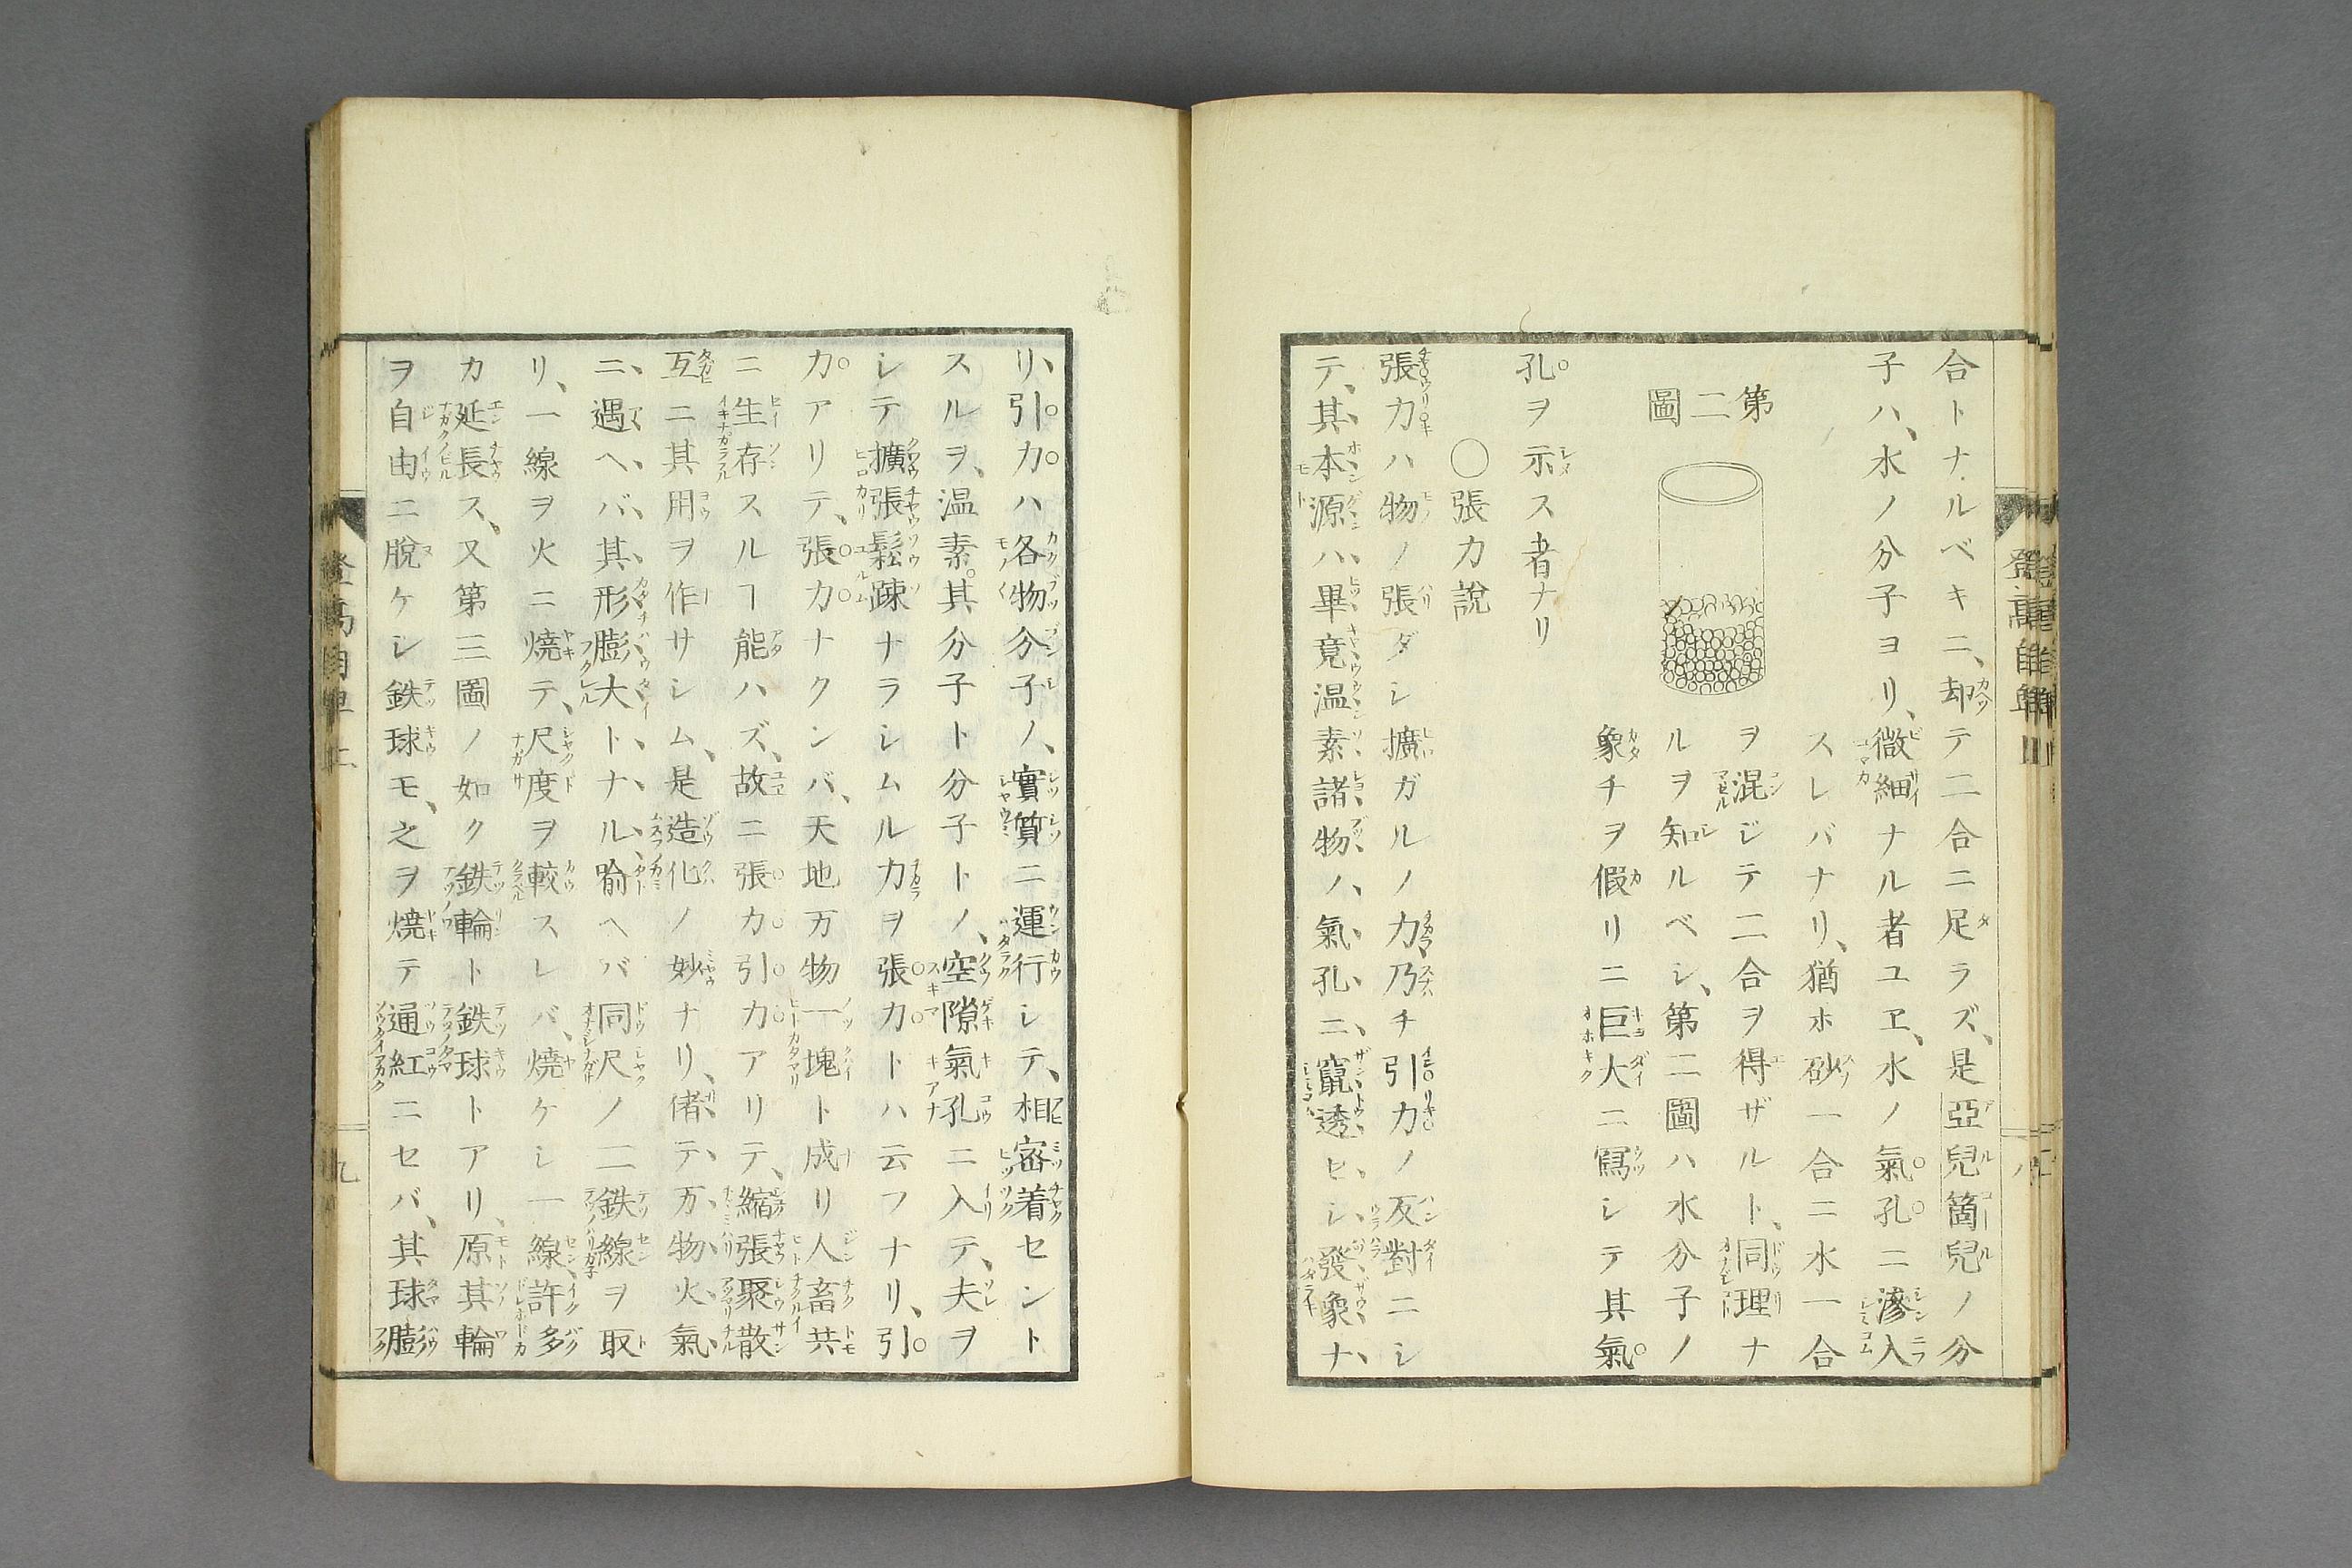 合トナルベキニ、却テ二合ニ足ラズ、是亞兒箇兒ノ分
子ハ、水ノ分子ヨリ、微細ナル者ユヱ、水ノ氣孔ニ滲入
スレバナリ、猶ホ砂一合ニ水一合
ヲ混ジテ二合ヲ得ザルト、同理ナ
ルヲ知ルベシ、第二圖ハ水分子ノ
象チヲ假リニ巨大ニ寫シテ其氣
第二圖
孔ヲ示ス者ナリ
〇張力說
張力ハ物ノ張ダシ擴ガルノ力、乃チ引力ノ反對ニシ
テ、其本源ハ、畢竟温素諸物ノ、氣孔ニ、竄透ヒシ、發象ナ、
リ、引力ハ各物分子ノ、實質ニ運行シテ、相密着セント
スルヲ、温素其分子ト分子トノ、空隙氣孔ニ入テ、夫ヲ
シテ擴張鬆疎ナラシムル力ヲ張力トハ云フナリ、引
力アリテ、張力ナクンバ、天地万物一塊ト成リ人畜共
ニ生存スルヿ能ハズ、故ニ張力引力アリテ、縮張聚散
互ニ其用ヲ作サシム、是造化ノ妙ナリ、偖テ、万物火氣、
ニ、遇ヘバ、其形膨大トナル、喻ヘバ同尺ノ二鉄線ヲ取
リ、一線ヲ火ニ燒テ、尺度ヲ較スレバ、燒ケシ一線、許多
カ延長ス、又第三圖ノ如ク鉄輪ト鉄球トアリ、原其輪
ヲ自由ニ脫ケシ鉄球モ、之ヲ燒テ通紅ニセバ、其球膨
九